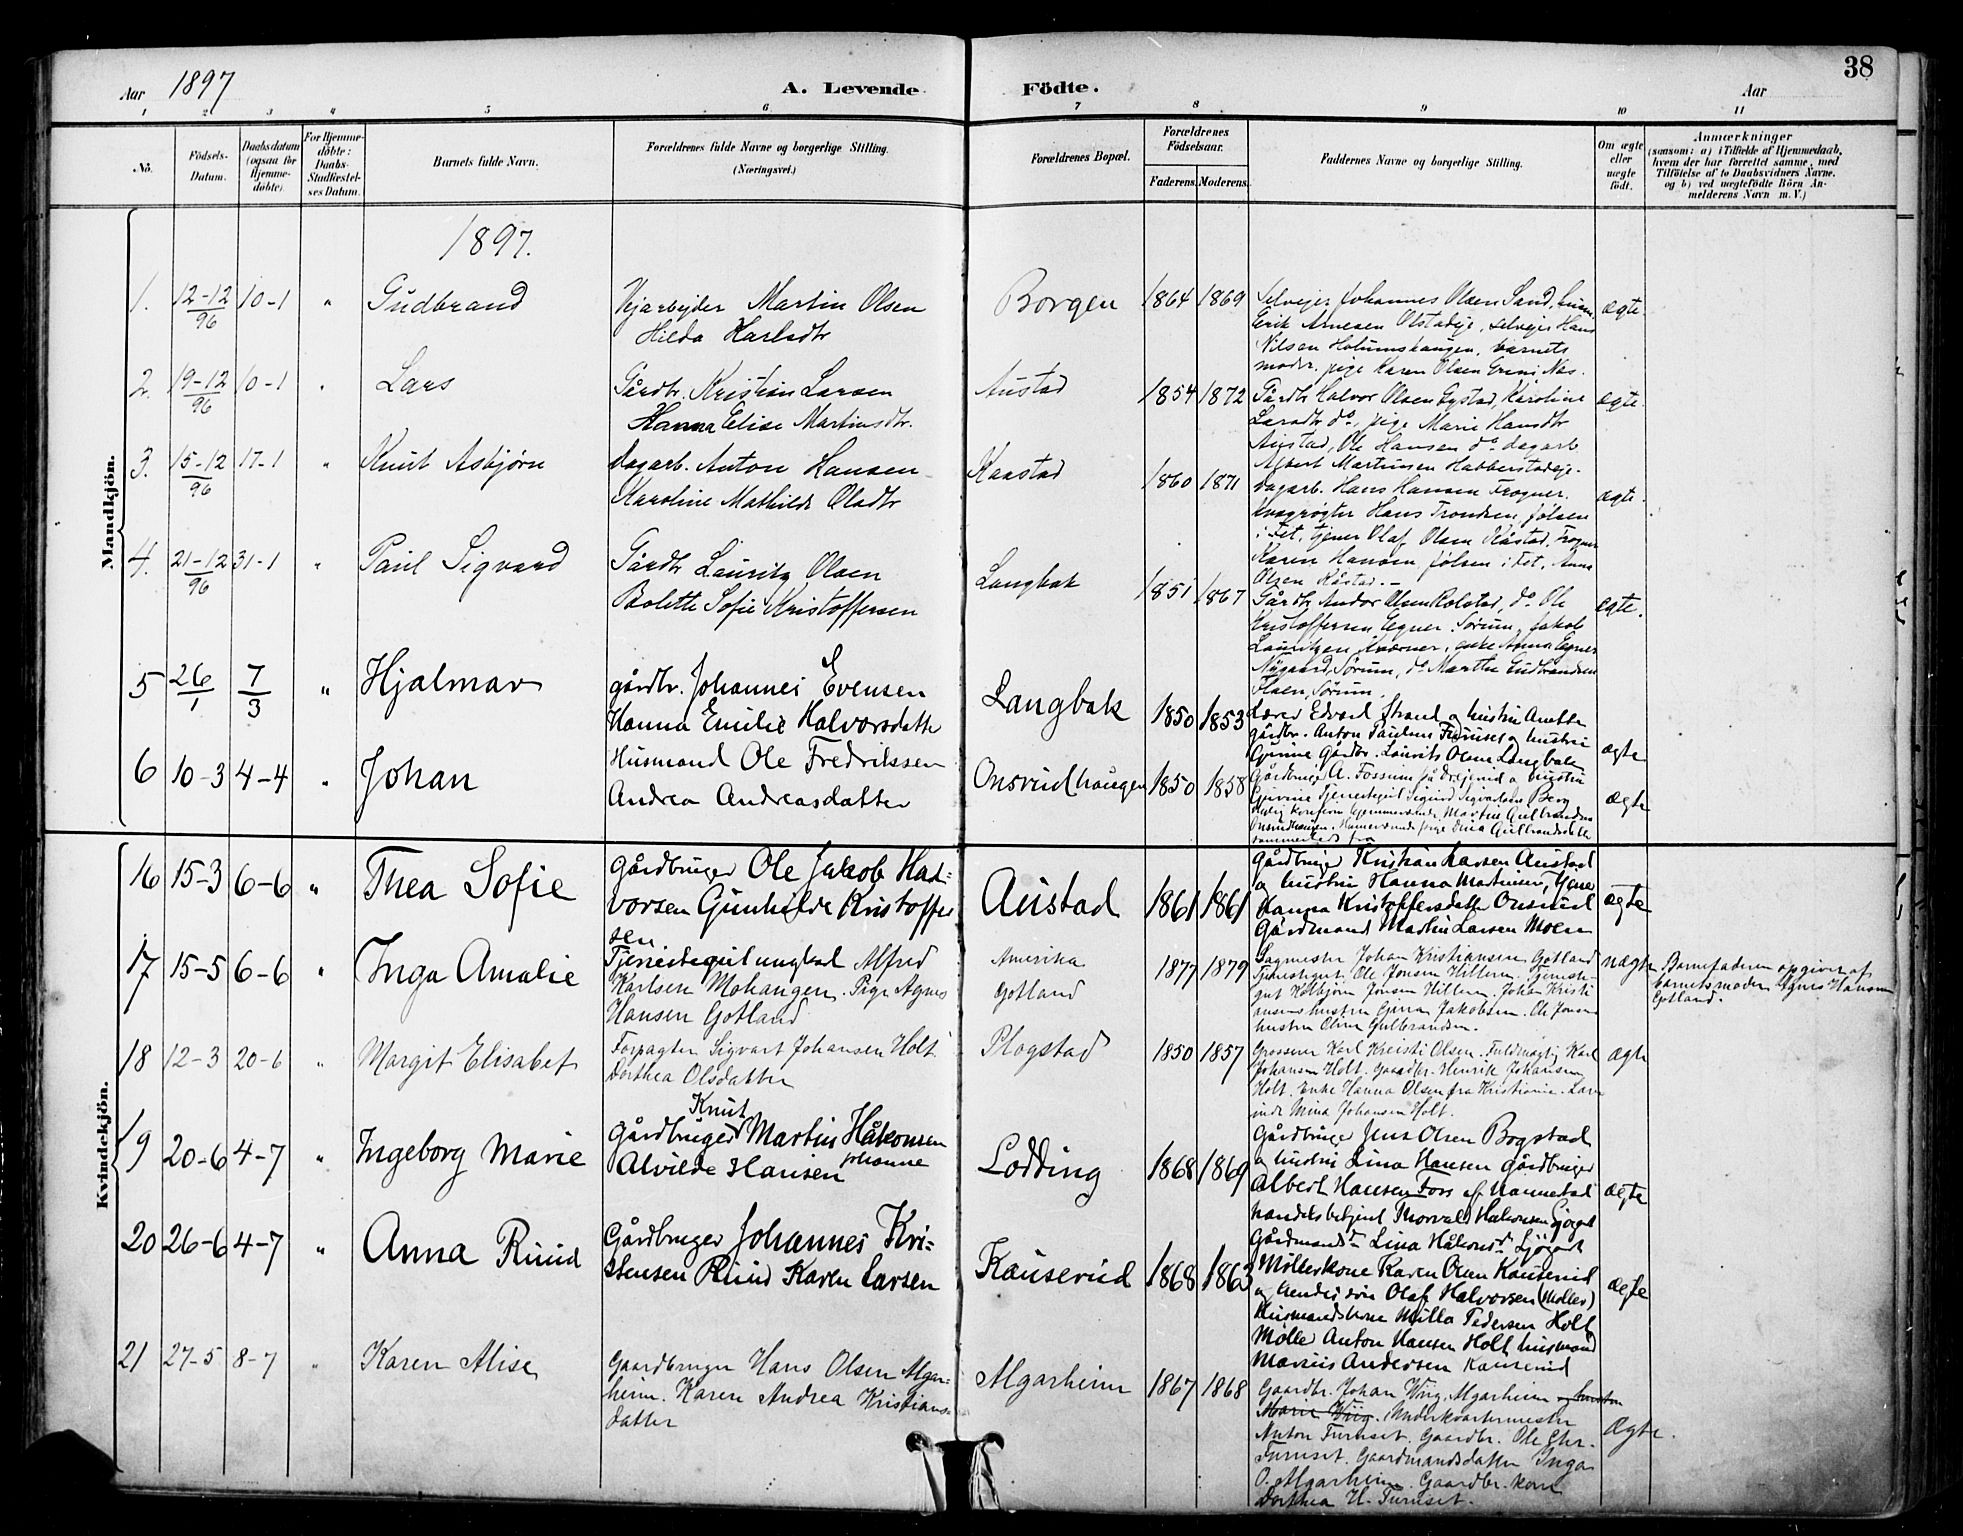 38
Aar 1897
A. Levende
Födte.
Aar
1 2 3 4 5 6 7 8 9 10 11
No.
Födsels-
Datum.
Daabsdatum
(ogsaa for
Hjemme-
döbte).
For Hjemme-
döbte:
Daabs-
Stadfæstel-
ses Datum.
Barnets fulde Navn.
Forældrenes fulde Navne og borgerlige Stilling.
(Næringsvei.)
Forældrenes Bopæl.
Forældrenes
Födselsaar.
Faderens. Moderens.
Faddernes Navne og borgerlige Stilling.
Om ægte
eller
uægte
födt.
Anmærkninger
(saasom: a) i Tilfælde af Hjemmedaab,
hvem der har forrettet samme, med
Tilföielse af to Daabsvidners Navne.
og b) ved uægtefödte Börn An-
melderens Navn m. V.)
Mandkjön.
1897.
1. 12-12/96 10-1 " Gudbrand
Vejarbejder Martin Olsen
Hilda Karlsdtr
Borgen 1864 1869
Selvejer Johannes Olsen Sand, husm.
Erik Arnesen Olstadeje, selvejer Hans
Nilsen Holumshaugen, barnets
moder, pige Karen Olsen
ægte.
2. 19-12/96 10-1 " Lars
Gårdbr. Kristian Larsen
Hanna Elise Martinsdtr.
Austad 1854 1872
Gårdbr Halvor Olsen Gystad, Karoline
Larsdtr do, pige Marie Hansdtr
Austad, Ole Hansen do dagarb
Albert Martinsen Habberstadeje.
ægte.
3. 15-12/96 17-1 " Knut Asbjørn
dagarb. Anton Hansen
Karoline Mathilde Olsdtr
Kaastad 1860 1871
dagarb. Hans Hansen Frogner.
Hans Trondsen Jølsen
i Fet, tjener Olaf Olsen Kåstad, Frogner
Karen Hansen Jølsen i Fet, Anna
Olsen Kåstad.-
ægte.
4. 21-12/96 31-1 " Paul Sigvard
Gårdbr Lauritz Olsen
Bolette Sofie Kristoffersen
Langbak 1851 1867
Gårdbr Andor Olsen Rolstad, do Ole
Kristoffersen Egner Sørum, Jakob
Lauritzen Kværner, enke Anna Egner
Nygaard, Sørum, do Marthe Gudbrandsen
Olsen, Sørum.
ægte.
5 26/1 7/3 " Hjalmar
gårdbr. Johannes Evensen
Hanna Emilie Halvorsdatter
Langbak 1850 1853
Lærer Edvard Strand og hustru Anette
gårdbr. Anton Paulsen Furuset og hustru
Gurine Gårdbr. Laurits Olsen Langbak
ægte
6 10-3 4-4 " Johan
Husmand Ole Fredrikssen
Andrea Andreasdatter
Onsrudhaugen 1850 1858
Gårdbruger A. Fossum på Drejerud og hustru
Gurine Tjenestegut Sigurd Sigvardsen Berg
Martin Gulbrandsen
Onsrudhaugen. Hjemmeværende pige Dina Gulbrandsdatter
sammesteds fra
ægte
Kvindekjön.
16 15-3 6-6 " Thea Sofie
gårdbruger Ole Jakob Hal=
vorsen Gunhilde Kristoffer
sen
Austad 1861 1861
gårdbruger Kristian Larsen Austad
og hustru Hanna Martinsen, Pige
Hanna Kristoffersdatter Onsrud
Gårdmand Martin Larsen Moen
ægte
17 15-5 6-6 " Inga Amalie
Tjenestegut ungkarl Alfred
Karlsen Mohaugen. Pige Agnes
Hansen Gotland
Amerika
Gotland
1877 1879
Sagmester Johan Kristiansen Gotland
Tjenestegut Ole Jonsen Hilleren. Tjeneste-
gut Kolbjörn Jonsen Hilleren. Johan Kristi
ansens hustru Gina Jakobsen. Ole Jonsens
hustru Oline Gulbrandsen.
uægte
Barnefaderen opgiven af
barnets moder Agnes Hansen
Gotland.
18 12-3 20-6 " Margit Elisabet
Forpagter Sigvart Johansen Holt
Dorthea Olsdatter
Plogstad 1850 1857
Grosserer Karl Kristi Olsen. Fuldmægtig Karl
Johansen Holt. gaardbr. Henrik Johansen
Holt. Enke Hanna Olsen fra Kristiania. Lærer
inde Mina Johansen Holt.
ægte
19 20-6 4-7 " Ingeborg Marie
Knut
Gårdbruger Martin Håkonsen
Alvilde Johanne Hansen
Lodding 1868 1869
Gårdbruger Jens Olsen Bogstad
og hustru Lina Hansen gårdbruger
Albert Hansen Fors af Nannestad
handelsbetjent Thorvald Håkonsen Gjøgst
Gårdmandsdr Lina Håkonsdr Gjøgst
ægte
20 26-6 4-7 " Anna Ruud
Gårdbruger Johannes Kri=
stensen Ruud Karen Larsen
Kauserud 1868 1863
Møllerkone Karen Olsen Kauserud
og hendes søn Olaf Halvorsen (Møller)
Husmandskone Milla Pedersen Holt
Mølle Anton Hansen Holt husmand
Marius Andersen Kauserud
ægte
21 27-5 8-7 " Karen Alise
Gaardbruger Hans Olsen Algar=
heim. Karen Andrea Kristians=
datter
Algarheim 1867 1868
Gaardbr. Johan Wiig, Algarheim og hustru
Marie Wiig. Underkvartermester
Anton Furuset. Gaardbr. Ole Chr.
Furuset. Gaardmandsdatter Inga
O. Algarheim. Gaardbr. kone
Dorthea H. Furuset.
ægte.